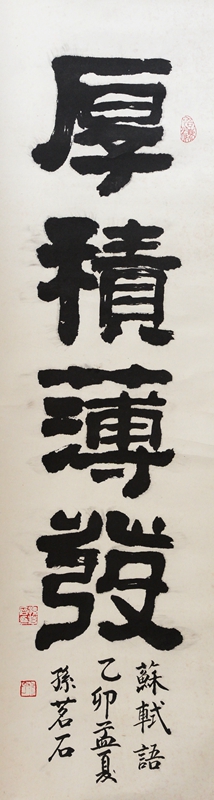 厚積薄發
蘇軾語
乙卯孟夏
孫茗石